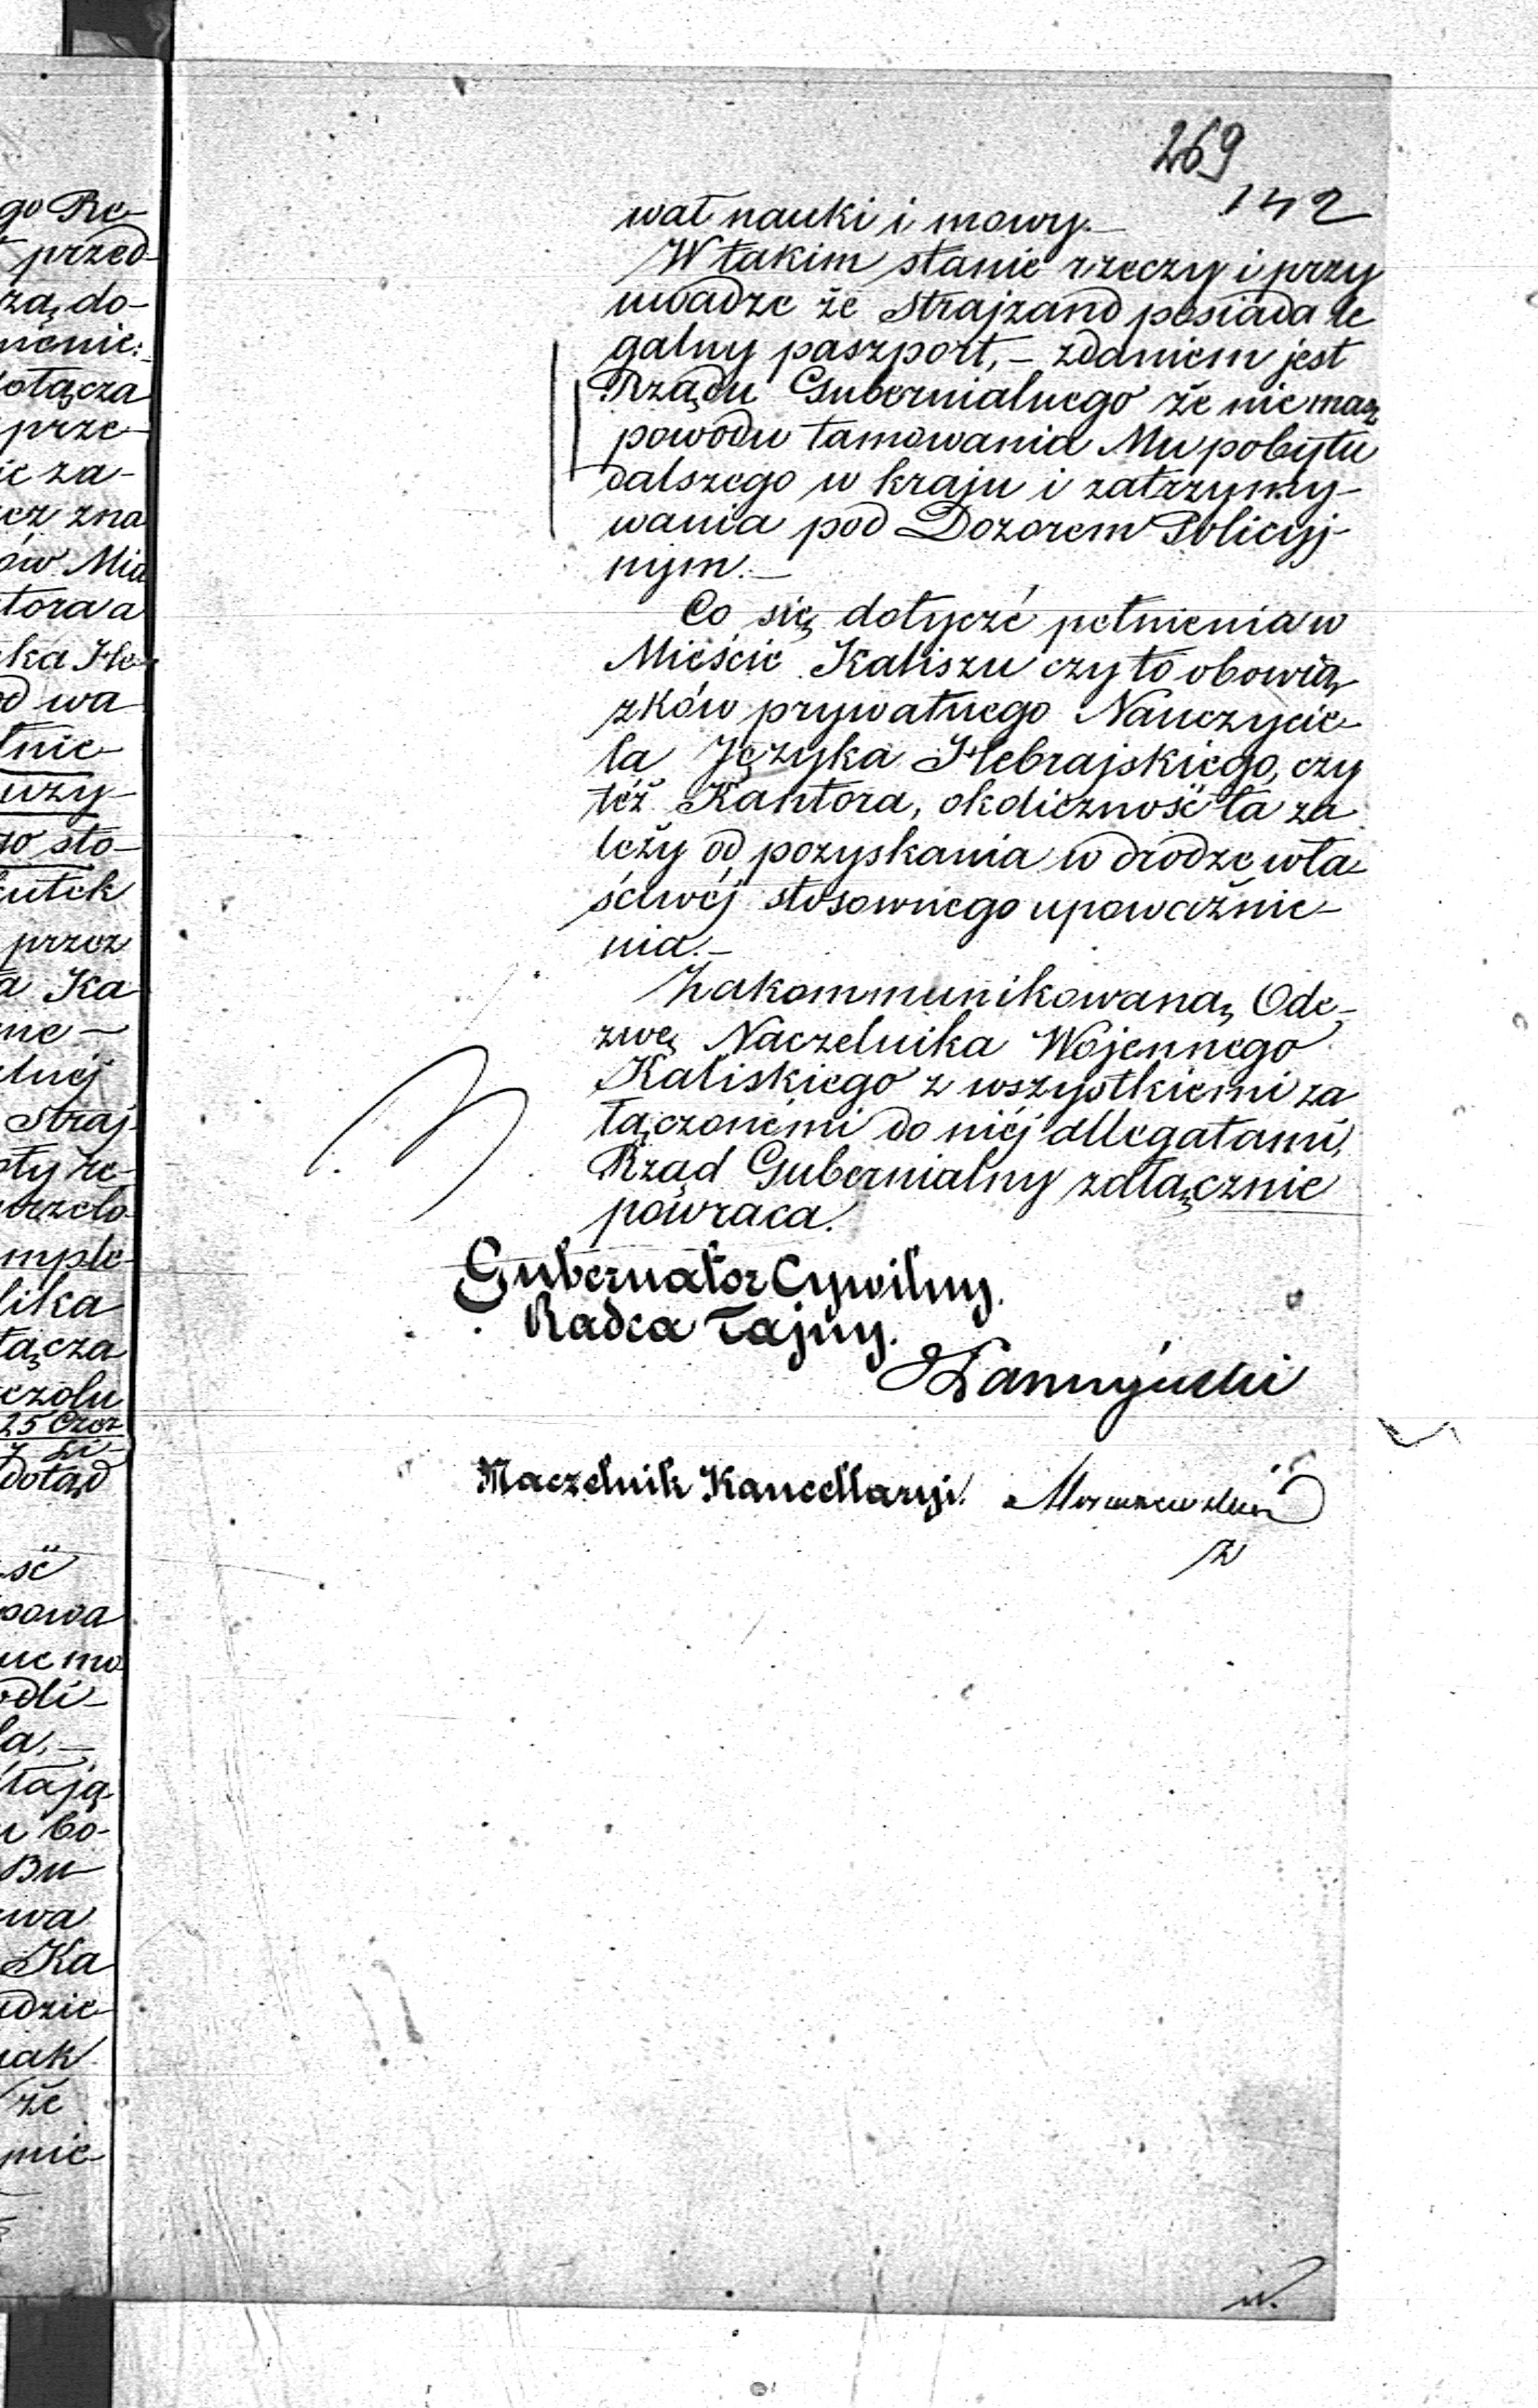 269
142
wał nauki i mowy.—
W takim stanie rzeczy i przy
uwadze że Strajzand posiada le
galny paszport,— zdaniem jest
Rządu Gubernialnego że nie masz
powodu tamowania Mu pobytu
dalszego w kraju i zatrzymy-
wania pod Dozorem Policyj-
nym.—
Co się dotycze pełnienia w
Mieście Kaliszu czy to obowią
zków prywatnego Nauczycie-
la Języka Hebrajskiego, czy
téż Kantora, okoliczność ta za
leży od pozyskania w drodze wła
ściwéj stosownego upoważnie-
nia.—
Zakommunikowaną Ode-
zwę Naczelnika Wojennego
Kaliskiego z wszystkiemi za
łączonémi do niéj allegatami,
Rząd Gubernialny załącznie
powraca.
Gubernator Cywilny.
Radca Tajny.
Naczelnik Kancellaryi.
go Re-
przed-
zą do-
otącza
prze-
ić za-
ież zna
ów Mia
tora a
ka He-
od wa
tnie-
uzy-
go sto-
utek
przez
a Ka
nie—
lnéj
Straj-
oty re-
mple-
lika
łącza
25 Czer
dotąd
ść
powa
ne mo
odli-
la.—
tają
Bu
wa
Ka
udzie-
iak
że
mie-